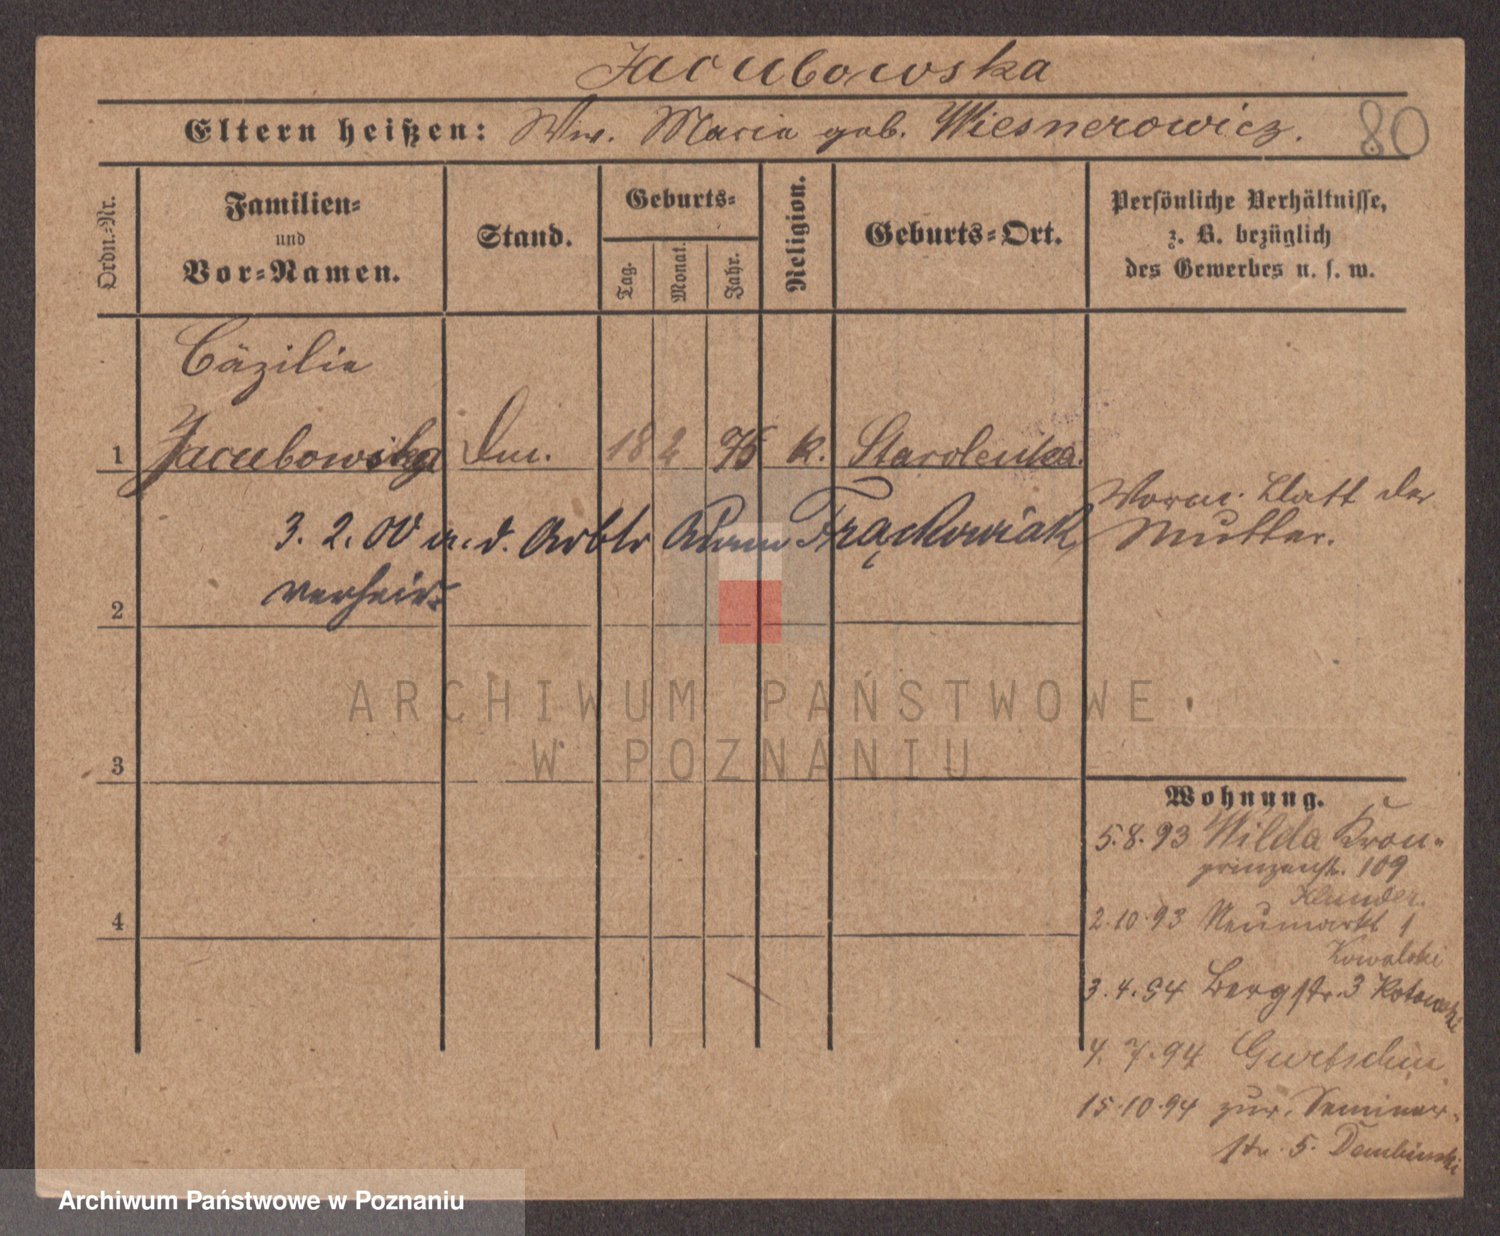 Jacubowska
Eltern heißen: Ww. Maria geb. Wiesnerowicz.
80
Ordn.-Nr.
Familien-
und
Vor-Namen.
Stand.
Geburts-
Tag.
Monat.
Jahr.
Religion.
Geburts-Ort.
Persönliche Verhältnisse,
z. B. bezüglich
des Gewerbes u. s. w.
Cäzilie
1 Jacubowska 18 2 76 k. Starolenka.
Vorm. Blatt der
Mutter.
3. 2. 00 m. d. Arbtr Adam Frąckowiak
verheir.
2
3
4
ARCHIWUM PAŃSTWOWE
W POZNANIU
Wohnung.
5.8.93 Wilda Kron-
prinzenstr. 109
2.10.93 Neumarkt 1
Kowalski
3.4.94 Bergstr. 3
4.7.94 Gurtschin
15.10.94 zur. Seminar-
str. 5. Dembinski
Archiwum Państwowe w Poznaniu